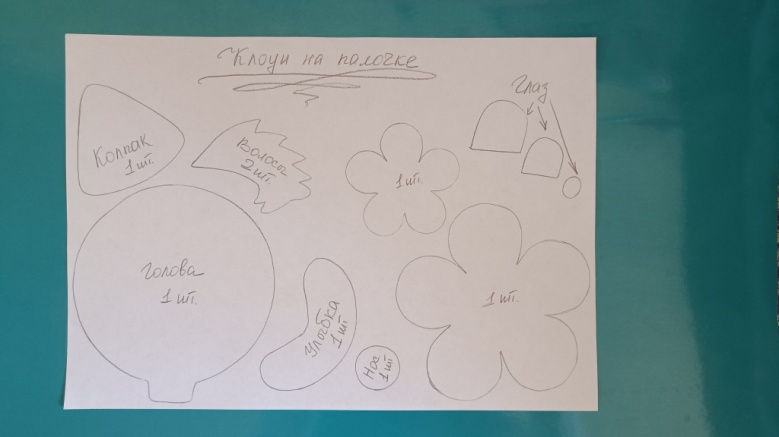 Клоун на палочке
Глаз
Колпак
1 шт.
Волосы
2 шт.
1 шт.
Голова
1 шт.
Улыбка
1 шт
Нос
1 шт
1 шт.